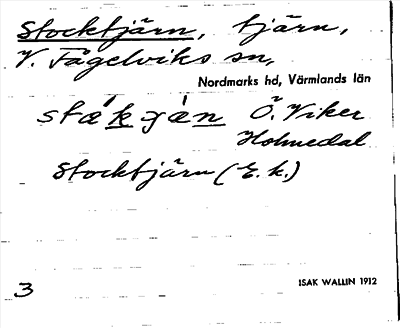 Stocktjärn, tjärn,
V. Fågelviks sn,
Nordmarks hd, Värmlands län
Ö. Viker
Holmedal
Stocktjärn (E.k.)
3
ISAK WALLIN 1912